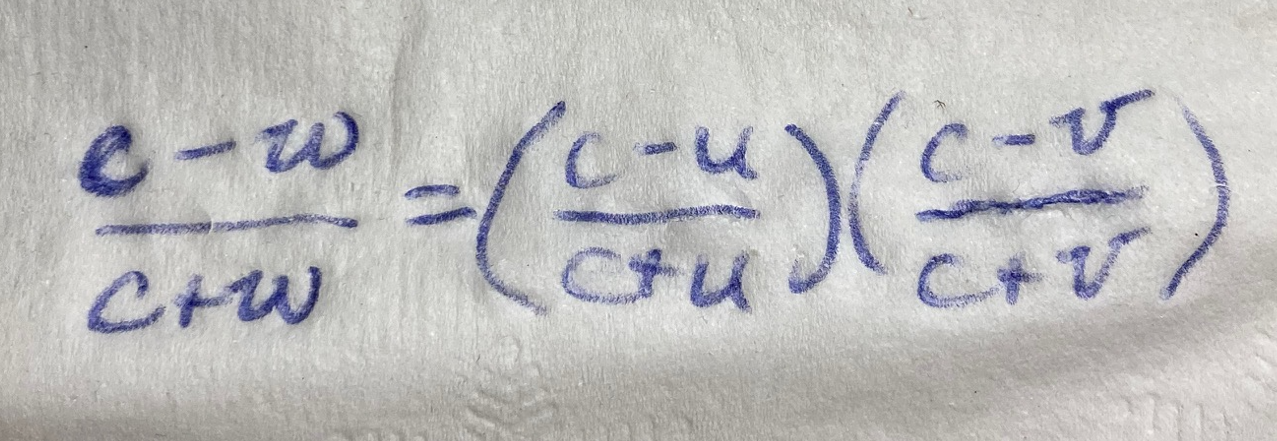 c - w / c + w = (c - u / c + u) (c - v / c + v)